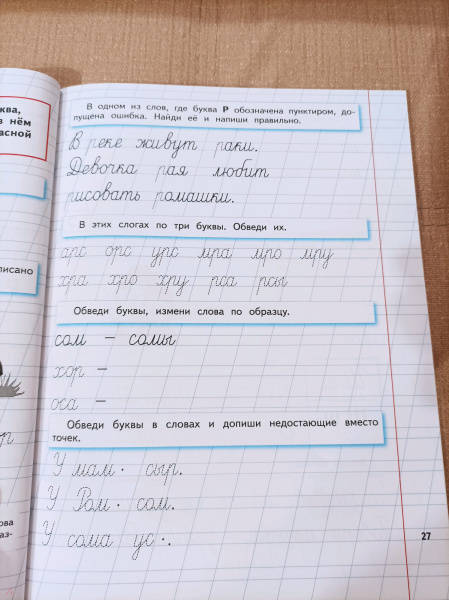 ква,
в нём
расной
В одном из слов, где буква Р обозначена пунктиром, до-
пущена ошибка. Найди её и напиши правильно.
В реке живут раки.
Девочка рая любит
рисовать ромашки.
В этих слогах по три буквы. Обведи их.
арс орс урс мра мро мру
хра хро хру рса рсы
писано
Обведи буквы, измени слова по образцу.
сом – сомы
хор –
оса –
Обведи буквы в словах и допиши недостающие вместо
точек.
У мам· сыр.
У Ром· сом.
У сома ус·.
р
ова
аз-
27